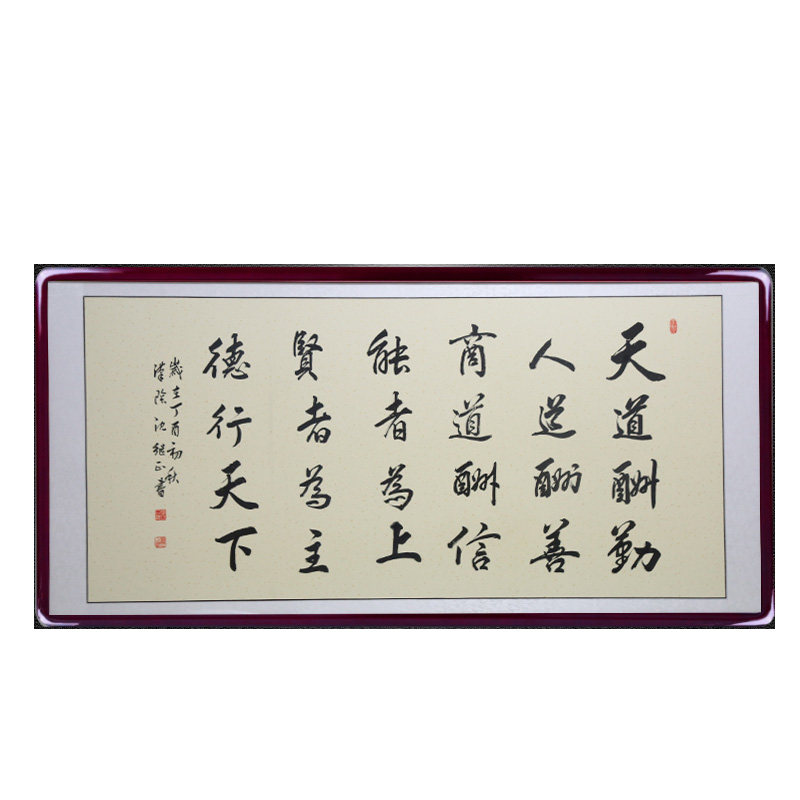 天道酬勤
人道酬善
商道酬信
能者為上
賢者為主
德行天下
歲在丁酉初秋
漢陰沈継正書